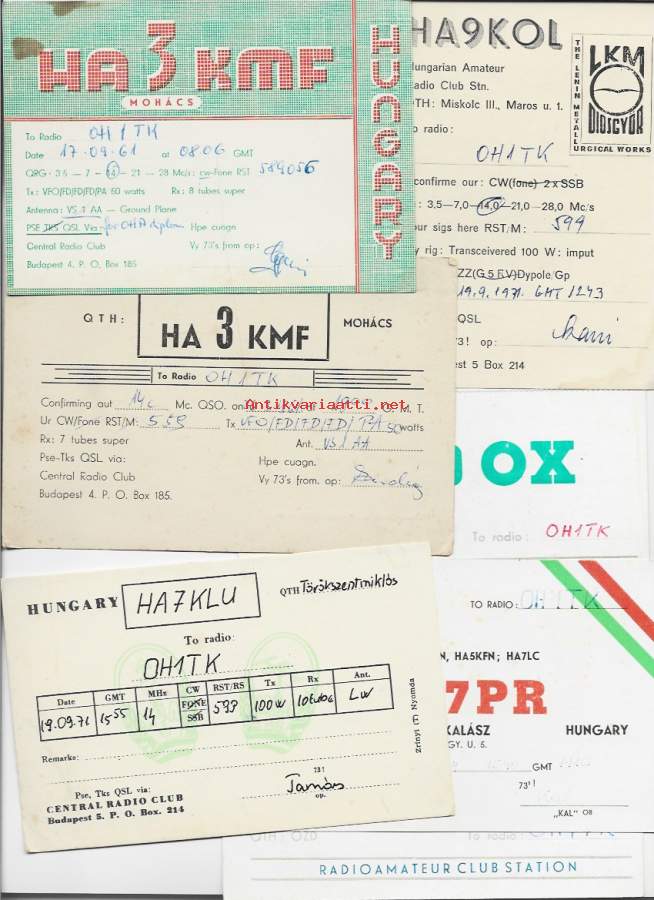 HA 3 KMF
MOHÁCS
HUNGARY
To Radio OH1TK
Date 17.09.61 at 0806 GMT
QRG 3.5 – 7 – 14 – 21 – 28 Mc/s: cw-Fone RST 589056
Tx: VFO/FD/FD/FD/PA 60 watts Rx: 8 tubes super
Antenna: VS 1 AA — Ground Plane
PSE Tks QSL Via: for OHA diplom Hpe cuagn
Central Radio Club Vy 73's from op:
Budapest 4. P. O. Box 185
HA9KOL
Hungarian Amateur
Radio Club Stn.
QTH: Miskolc III., Maros u. 1.
THE LENIN METALLURGICAL WORKS
LKM
DIOSGYŐR
To radio:
OH1TK
confirme our: CW(fone) 2 x SSB
: 3.5–7,0–14,0–21,0–28,0 Mc/s
our sigs here RST/M: 599
y rig: Transceivered 100 W: imput
ZZ(G 5 RV)Dypole/Gp
19.9.1971. GMT 1243
QSL
73! op:
est 5 Box 214
QTH: HA 3 KMF MOHÁCS
To Radio OH1TK
Confirming aut 14c Mc. QSO. on G. M. T.
Antikvariaatti.net
Ur CW/Fone RST/M: 559 Tx VFO/FD/FD/FD/PA 50 watts
Rx: 7 tubes super Ant. VS1AA
Pse-Tks QSL via: Hpe cuagn.
Central Radio Club Vy 73's from. op:
Budapest 4. P. O. Box 185.
OX
To radio: OH1TK
HUNGARY HA7KLU QTH Törökszentmiklós
To radio:
OH1TK
Date GMT MHz CW FONE SSB RST/RS Tx Rx Ant.
19.09.71 1555 14 593 100W LW
Remarks:
Zrínyi (T) Nyomda
Pse, Tks QSL via: 73!
CENTRAL RADIO CLUB Tamás
Budapest 5. P. O. Box. 214 op.
TO RADIO: OH1TK
N, HA5KFN; HA7LC
7PR
KALÁSZ HUNGARY
GY. U. 5.
GMT
73'!
"KAL" OB
QTH: OZD To radio OH1TK
RADIOAMATEUR CLUB STATION